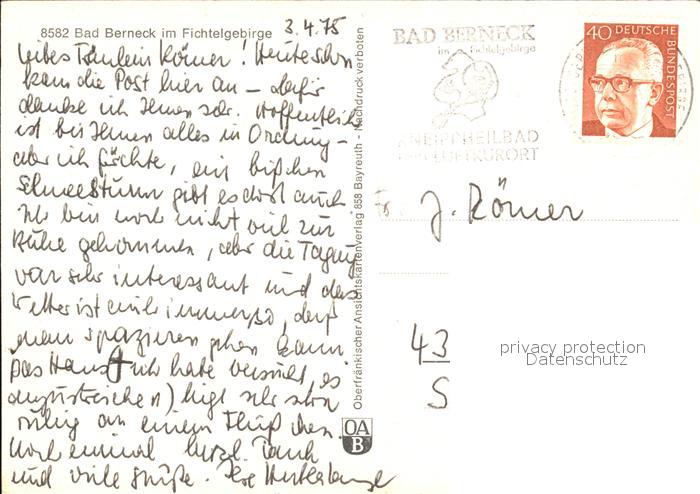 8582 Bad Berneck im Fichtelgebirge
3.4.75
Liebes Fräulein Römer! Heute schon
kam die Post hier an – dafür
danke ich Ihnen sehr. Hoffentlich
ist bei Ihnen alles in Ordnung –
aber ich fürchte, ein bißchen
Schneesturm gibt es dort auch
Ich bin noch nicht viel zur
Ruhe gekommen, aber die Tagung
war sehr interessant und das
Wetter ist immerso, daß
man spazieren gehen kann
Das Haus (ich habe versucht, es
) liegt sehr schön
ruhig an einem Fluß
Noch einmal herzl. Dank
und viele Grüße. Ihre
Oberfränkischer Ansichtskartenverlag 858 Bayreuth - Nachdruck verboten
OA
B
BAD BERNECK
im Fichtelgebirge
KNEIPPHEILBAD
LUFTKURORT
40 DEUTSCHE
BUNDESPOST
Fr. J. Römer
43
S
privacy protection
Datenschutz